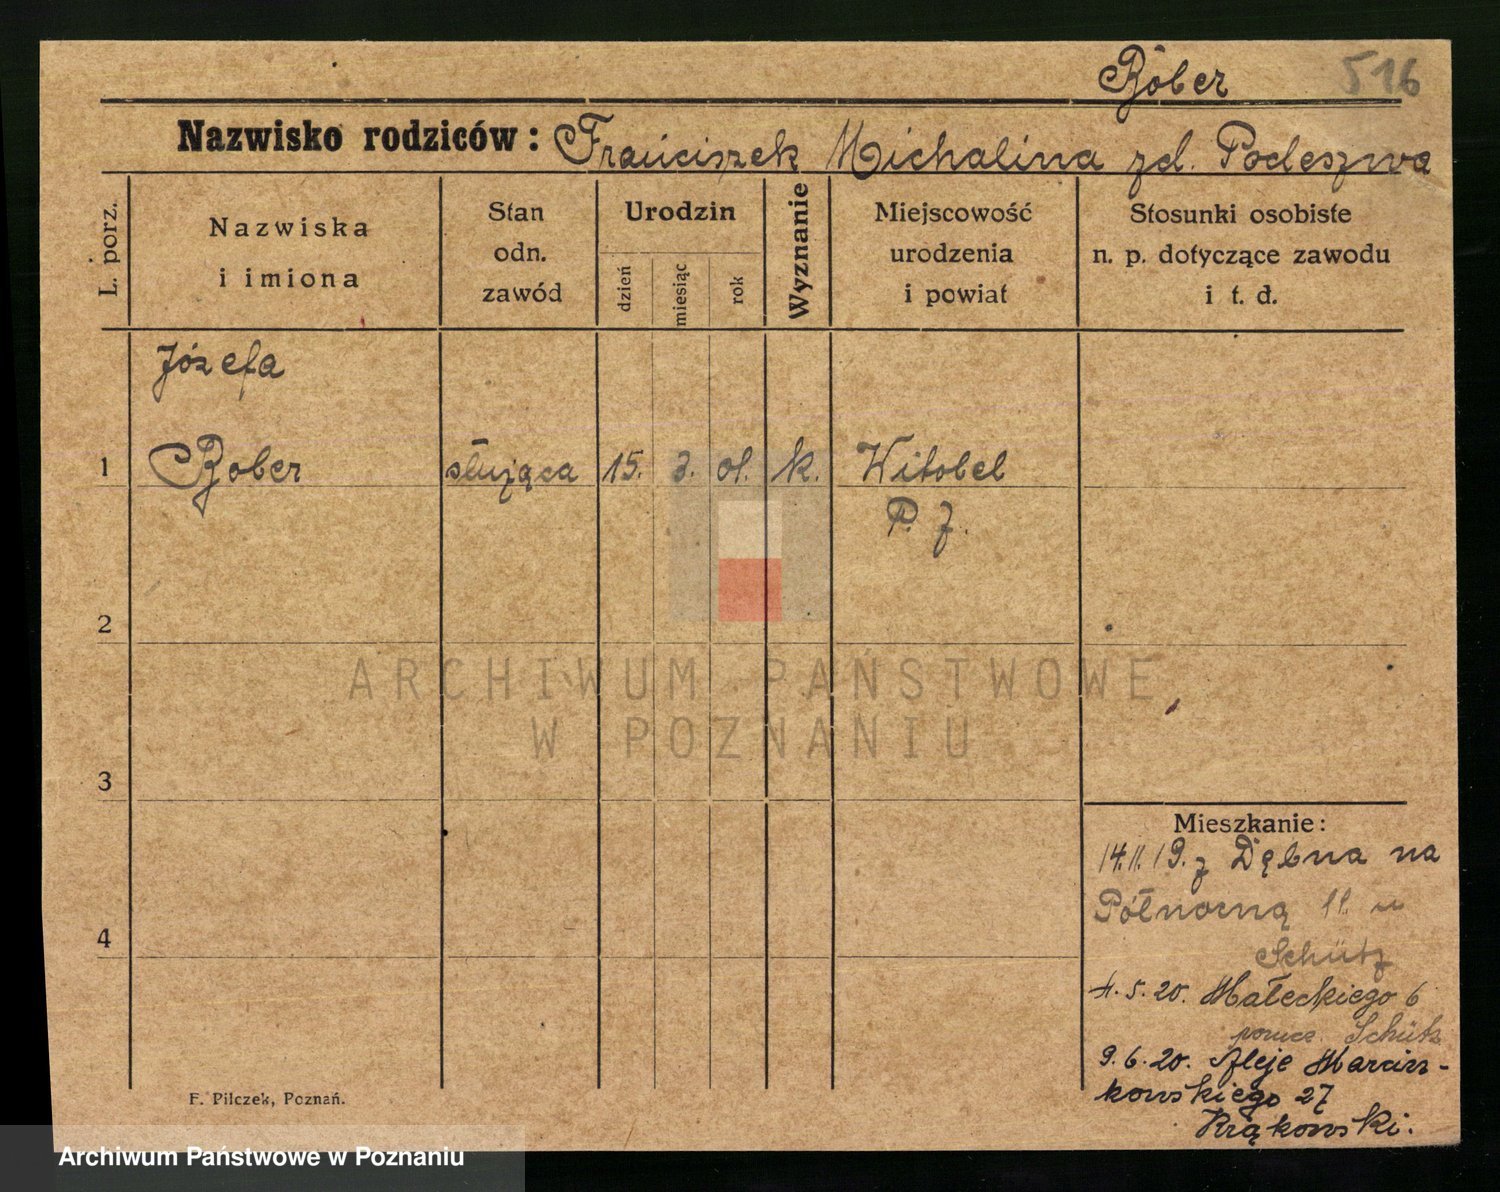 Bober 516
Nazwisko rodziców: Franciszek Michalina zd. Podeszwa
L. porz.
Nazwiska
i imiona
Stan
odn.
zawód
Urodzin
dzień
miesiąc
rok
Wyznanie
Miejscowość
urodzenia
i powiat
Stosunki osobiste
n. p. dotyczące zawodu
i t. d.
Józefa
1 Bober służąca 15. 3. 01. k. Witobel
P. Z.
2
ARCHIWUM PAŃSTWOWE
W POZNANIU
3
Mieszkanie:
14.11.19. z Dębna na
4 Północną 11. u
Schütz
4.5.20. Małeckiego 6
porucz. Schütz
9.6.20. Aleje Marcin-
kowskiego 27
Krąkowski.
F. Pilczek, Poznań.
Archiwum Państwowe w Poznaniu